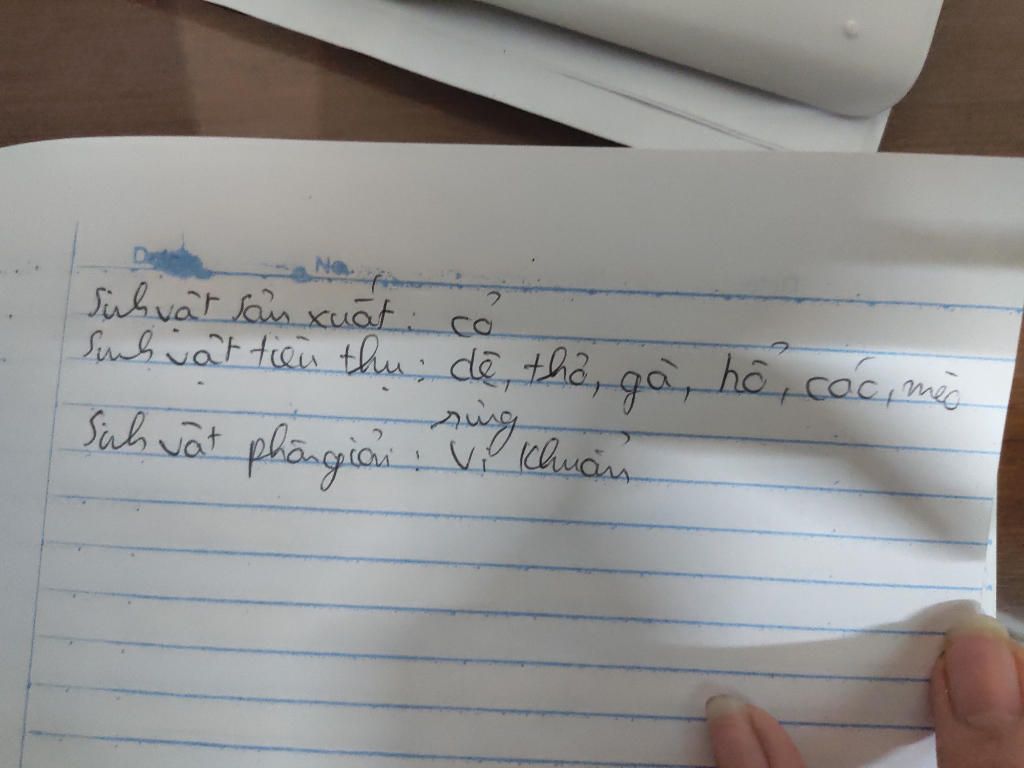 No.
Sinh vật sản xuất: cỏ
Sinh vật tiêu thụ: dê, thỏ, gà, hổ, cóc, mèo
rừng
Sinh vật phân giải: vi khuẩn